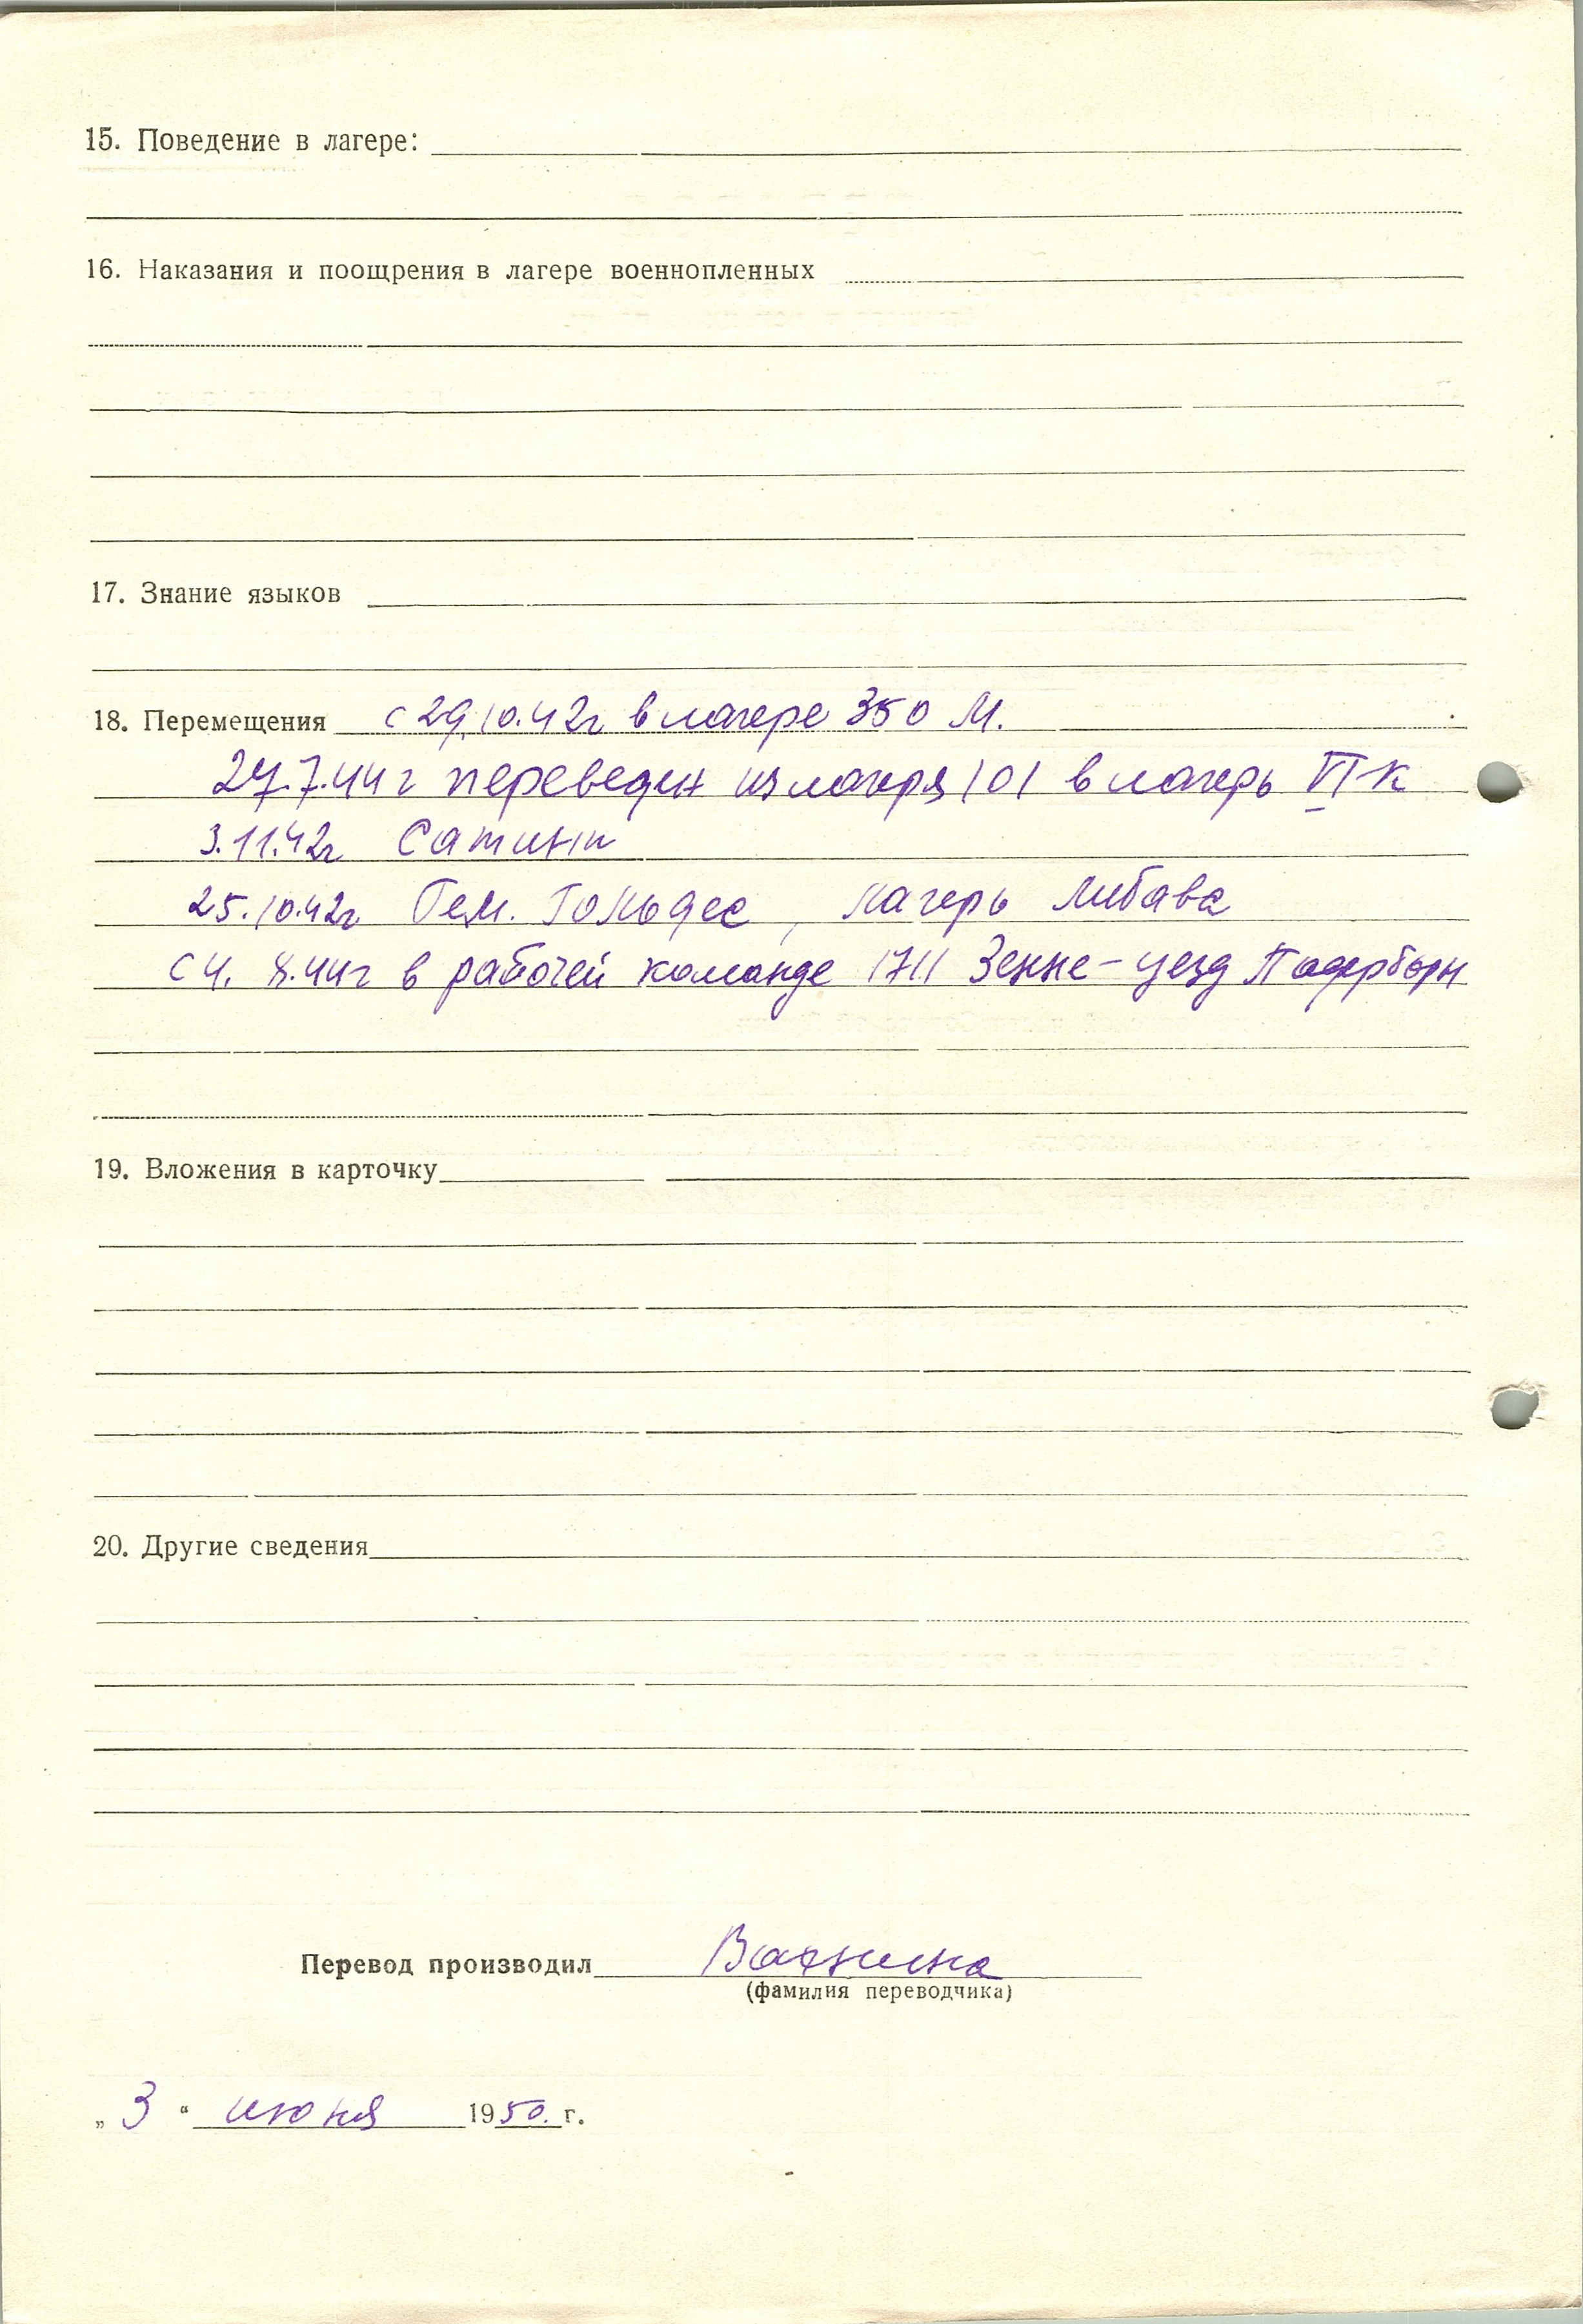 15. Поведение в лагере:
16. Наказания и поощрения в лагере военнопленных
17. Знание языков
18. Перемещения с 29.10.42г в лагере 350 М.
27.7.44г переведен из лагеря 101 в лагерь VI К
3.11.42г
25.10.42г Гем. Гольдес, лагерь Либава
с 4. 8.44г в рабочей команде 1711 Зенне-уезд Падерборн
19. Вложения в карточку
20. Другие сведения
Перевод производил
(фамилия переводчика)
„ 3 “ июня 1950. г.